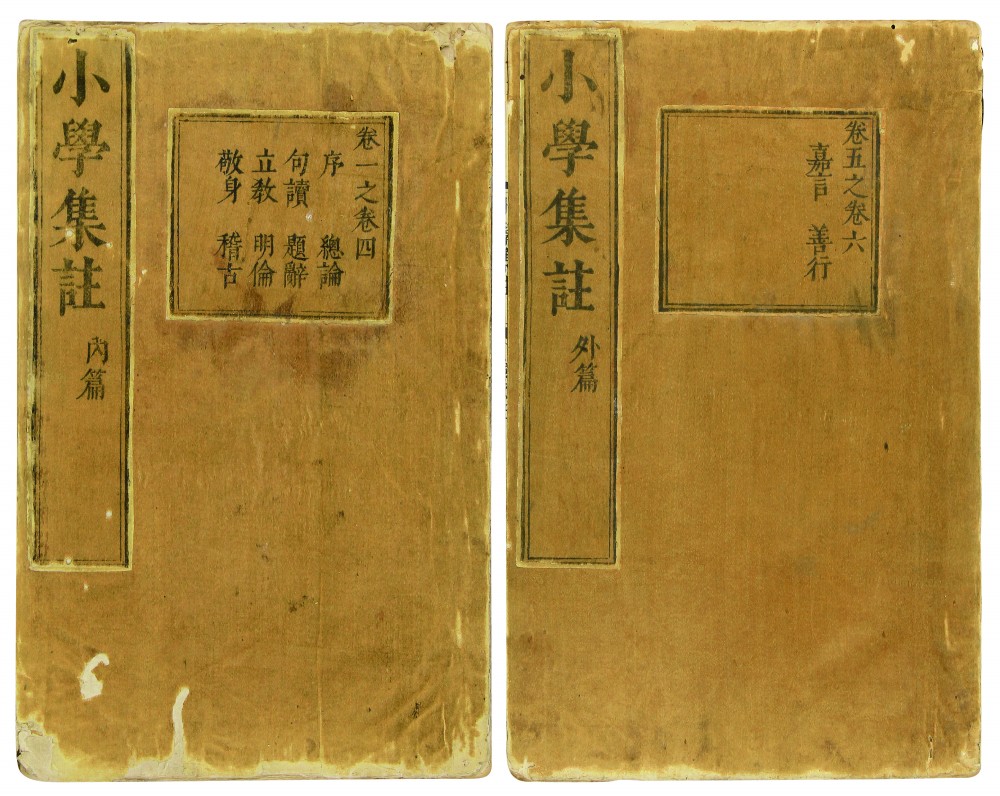 小學集註 內篇
卷一之卷四
序 總論
句讀 題辭
立教 明倫
敬身 稽古
小學集註 外篇
卷五之卷六
嘉言 善行